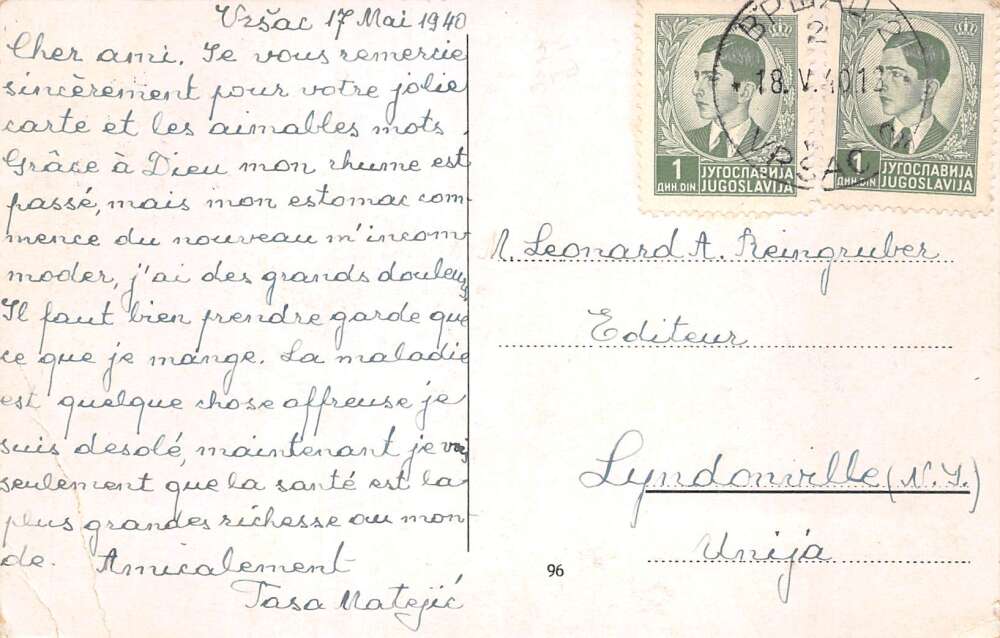 Vršac 17 Mai 1940
Cher ami. Je vous remercie
sincèrement pour votre jolie
carte et les aimables mots.
Grâce à Dieu mon rhume est
passé, mais mon estomac com-
mence du nouveau m'incom-
moder, j'ai des grands douleurs
Il faut bien prendre garde que
ce que je mange. La maladie
est quelque chose affreuse je
suis desolé, maintenant je vois
seulement que la santé est la
plus grandes richesse au mon-
de. Amicalement
Tasa Matejić
ВРШАЦ 2
18.V.40.12
VRŠAC 2
1
ДИН DIN
ЈУГОСЛАВИЈА
JUGOSLAVIJA
1
ДИН DIN
ЈУГОСЛАВИЈА
JUGOSLAVIJA
Leonard A. Reingruber
Editeur
Lyndonville (N.Y.)
Unija
96